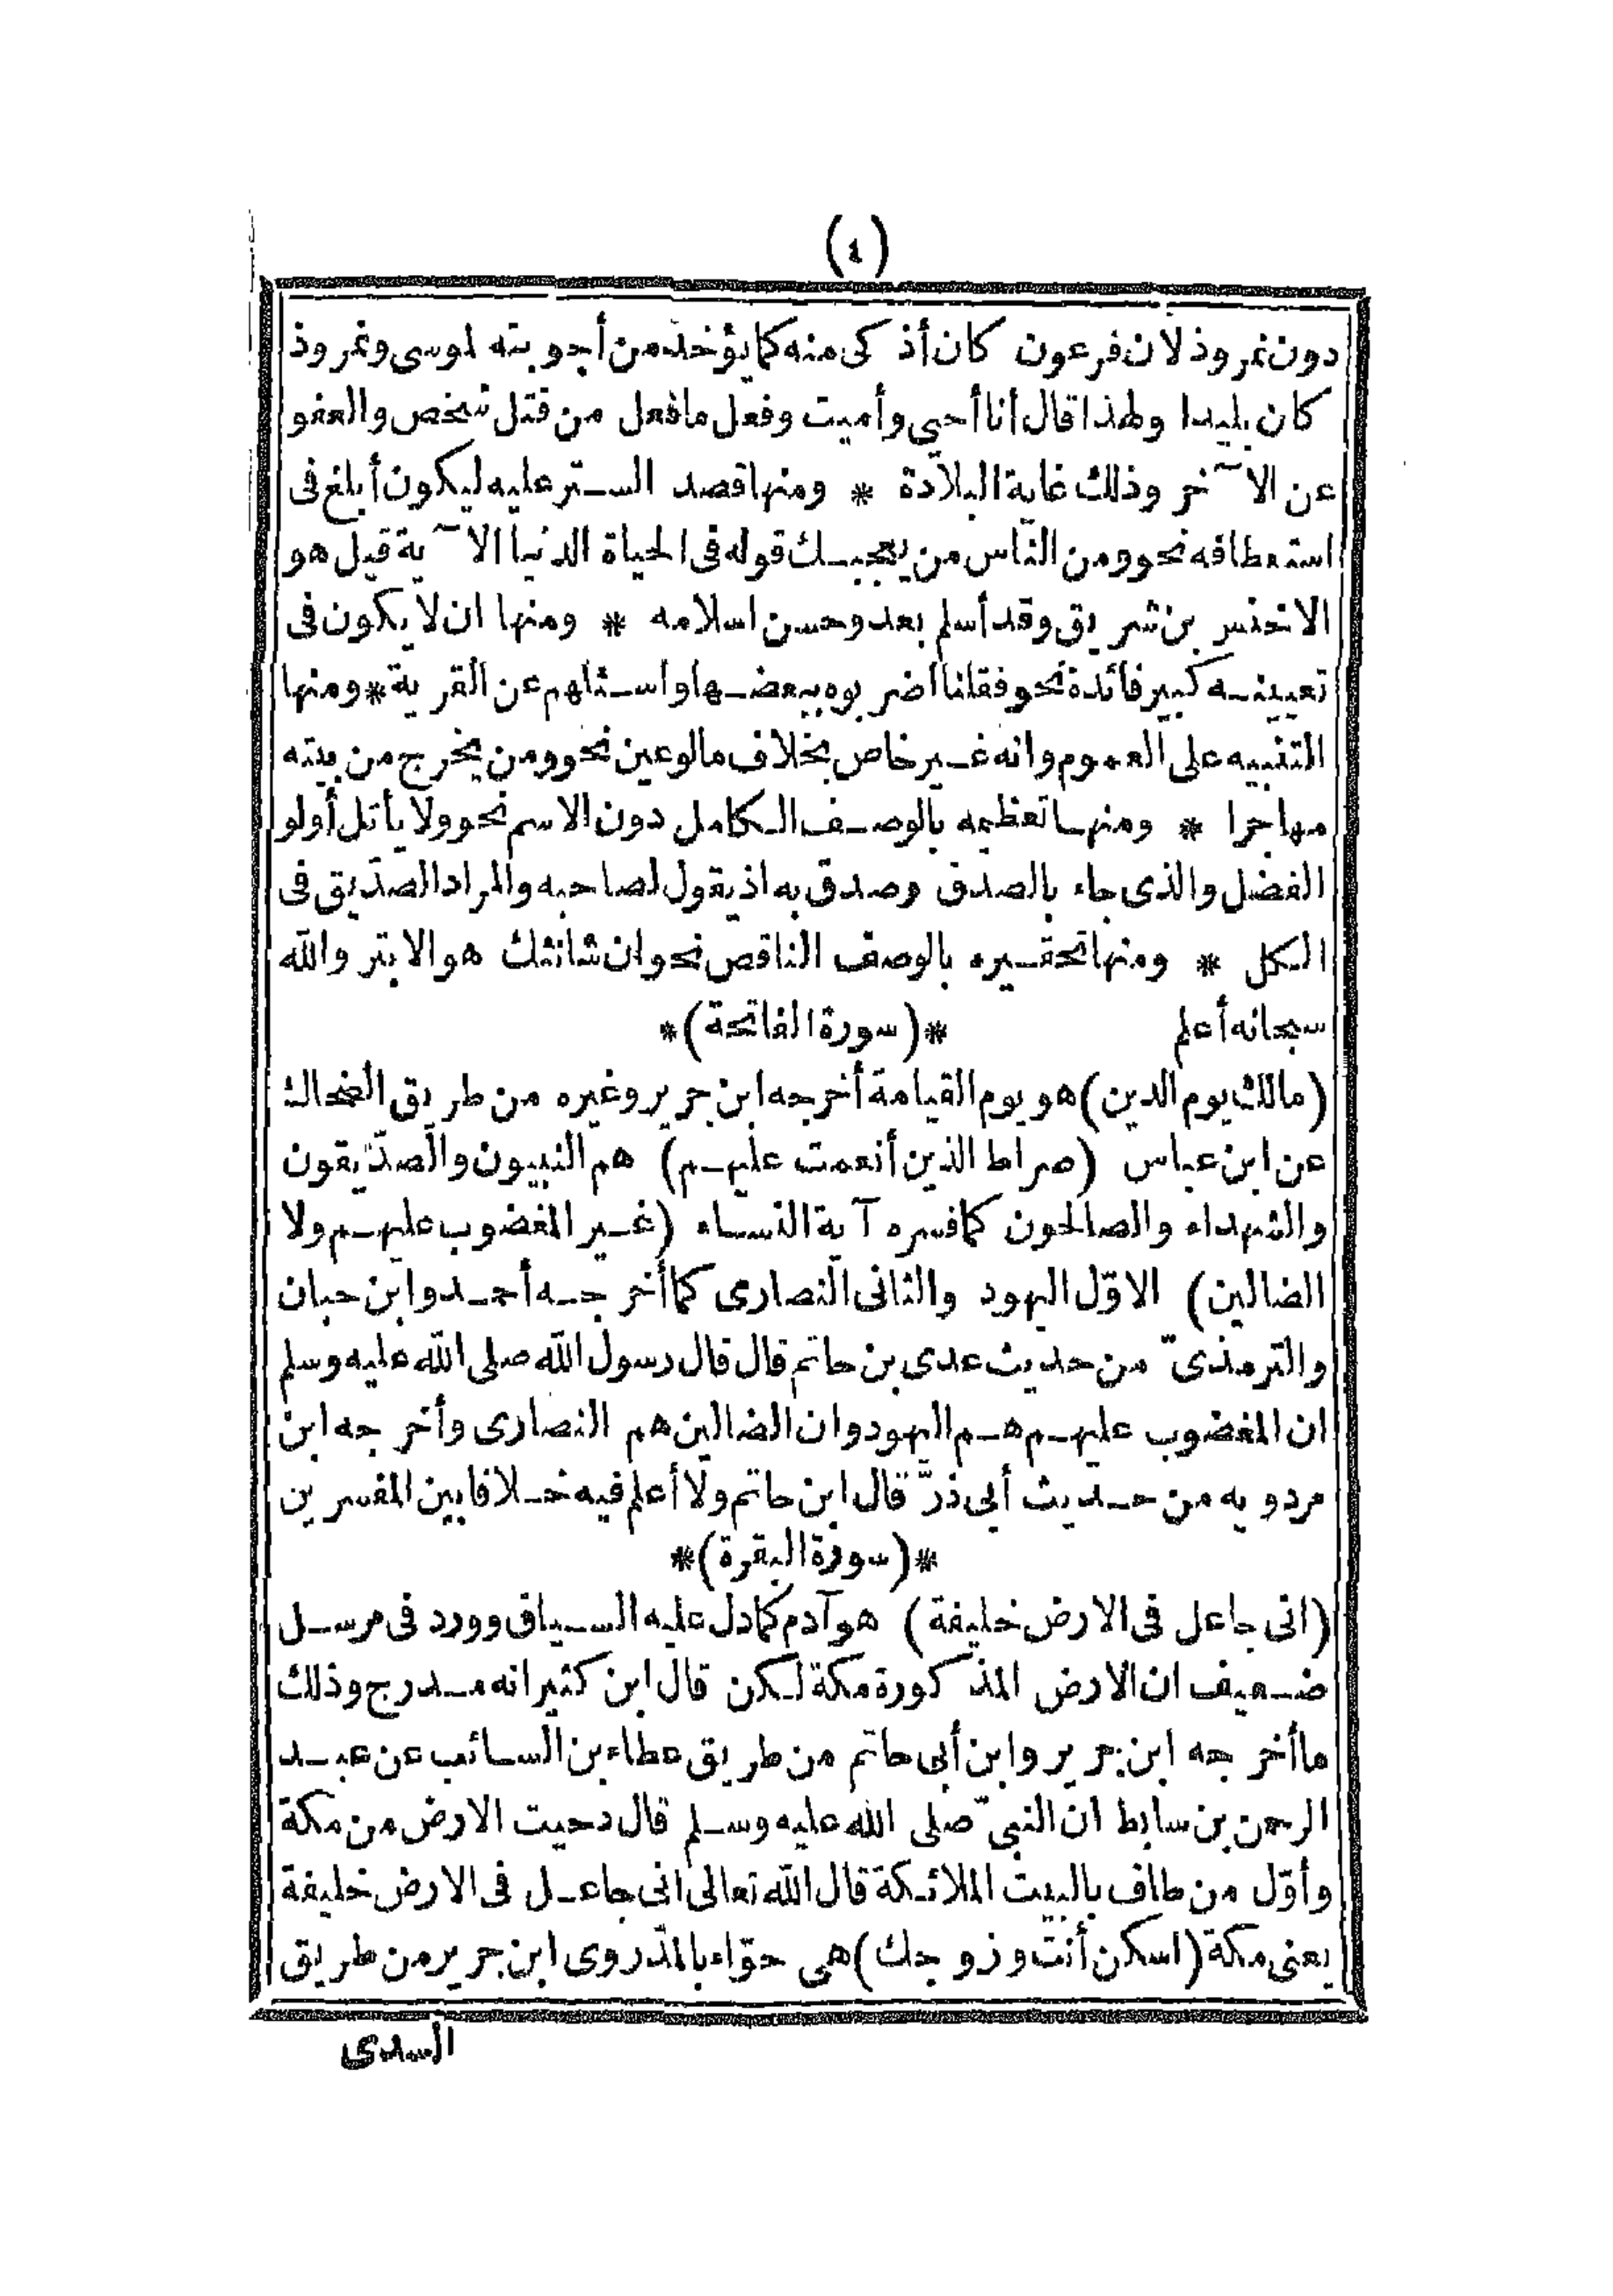 (٤)
دون نمروذ لان فرعون كان أذكى منه كما يؤخذ من أجوبته لموسى ونمروذ
كان بليدا ولهذا قال أنا أحيي وأميت وفعل ما فعل من قتل شخص والعفو
عن الآخر وذلك غاية البلادة * ومنها قصد الستر عليه ليكون أبلغ فى
استعطافه نحو ومن الناس من يعجبك قوله فى الحياة الدنيا الآية قيل هو
الاخنس بن شريق وقد أسلم بعد وحسن اسلامه * ومنها ان لا يكون فى
تعيينه كبير فائدة نحو فقلنا اضربوه ببعضها واسئلهم عن القرية * ومنها
التنبيه على العموم وانه غير خاص بخلاف مالو عين نحو ومن يخرج من بيته
مهاجرا * ومنها تعظيمه بالوصف الكامل دون الاسم نحو ولا يأتل أولو
الفضل والذى جاء بالصدق وصدق به اذ يقول لصاحبه والمراد الصدّيق فى
الكل * ومنها تحقيره بالوصف الناقص نحو ان شانئك هو الابتر والله
سبحانه أعلم *(سورة الفاتحة)*
(مالك يوم الدين) هو يوم القيامة أخرجه ابن جرير وغيره من طريق الضحاك
عن ابن عباس (صراط الذين أنعمت عليهم) هم النبيون والصدّيقون
والشهداء والصالحون كما فسره آية النساء (غير المغضوب عليهم ولا
الضالين) الاوّل اليهود والثانى النصارى كما أخرجه أحمد وابن حبان
والترمذىّ من حديث عدى بن حاتم قال قال رسول الله صلى الله عليه وسلم
ان المغضوب عليهم هم اليهود وان الضالين هم النصارى وأخرجه ابن
مردويه من حديث أبى ذرّ قال ابن حاتم ولا أعلم فيه خلافا بين المفسرين
*(سورة البقرة)*
(انى جاعل فى الارض خليفة) هو آدم كما دل عليه السياق وورد فى مرسل
ضعيف ان الارض المذكورة مكة لكن قال ابن كثير انه مدرج وذلك
ما أخرجه ابن جرير وابن أبى حاتم من طريق عطاء بن السائب عن عبد
الرحمن بن سابط ان النبىّ صلى الله عليه وسلم قال دحيت الارض من مكة
وأوّل من طاف بالبيت الملائكة قال الله تعالى انى جاعل فى الارض خليفة
يعنى مكة (اسكن أنت وزوجك) هى حوّاء بالمدّ روى ابن جرير من طريق
السدى